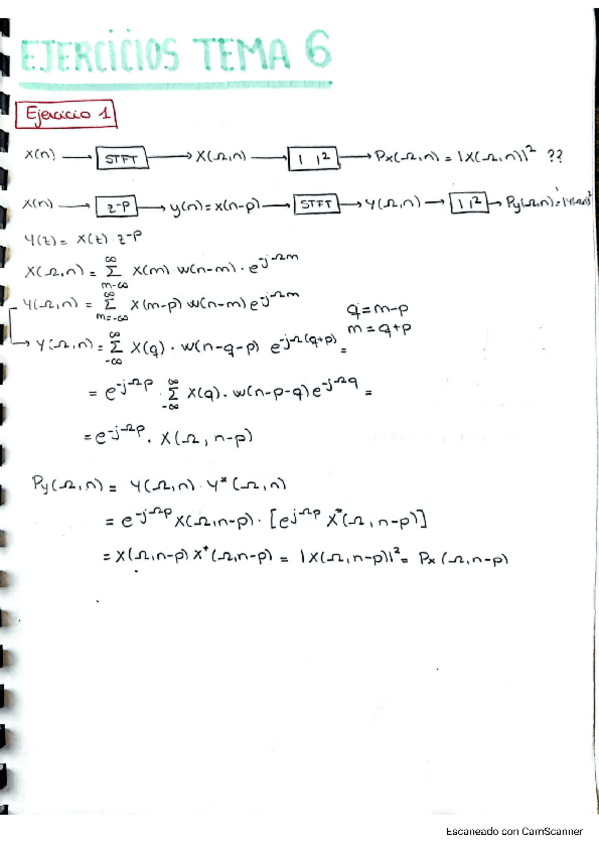 EJERCICIOS TEMA 6
Ejercicio 1
X(n) → STFT → X(Ω,n) → | |² → Px(Ω,n) = |X(Ω,n)|² ??
X(n) → z-P → y(n)=x(n-p) → STFT → Y(Ω,n) → | |² → Py(Ω,n)=|Y(Ω,n)|²
Y(z)= X(z) z-P
X(Ω,n) = ∞ Σ m-∞ X(m) w(n-m) · e-jΩm
Y(Ω,n) = ∞ Σ m=-∞ X(m-p) w(n-m) e-jΩm
q=m-p
m=q+p
→ Y(Ω,n) = ∞ Σ -∞ X(q) · w(n-q-p) e-jΩ(q+p) =
= e-jΩp · ∞ Σ -∞ X(q) · w(n-p-q) e-jΩq =
= e-jΩp · X(Ω, n-p)
Py(Ω,n) = Y(Ω,n) · Y*(Ω,n)
= e-jΩp X(Ω,n-p) · [ejΩp X*(Ω, n-p)]
= X(Ω,n-p) X*(Ω,n-p) = |X(Ω,n-p)|² = Px(Ω,n-p)
Escaneado con CamScanner